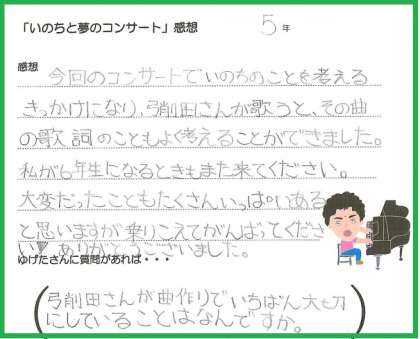 「いのちと夢のコンサート」感想
5年
感想
今回のコンサートでいのちのことを考える
きっかけになり、弓削田さんが歌うと、その曲
の歌詞のこともよく考えることができました。
私が6年生になるときもまた来てください。
大変だったこともたくさんいっぱいある
と思いますが乗りこえてがんばってくださ
い♥ありがとうございました。
ゆげたさんに質問があれば・・・
弓削田さんが曲作りでいちばん大切
にしていることはなんですか。